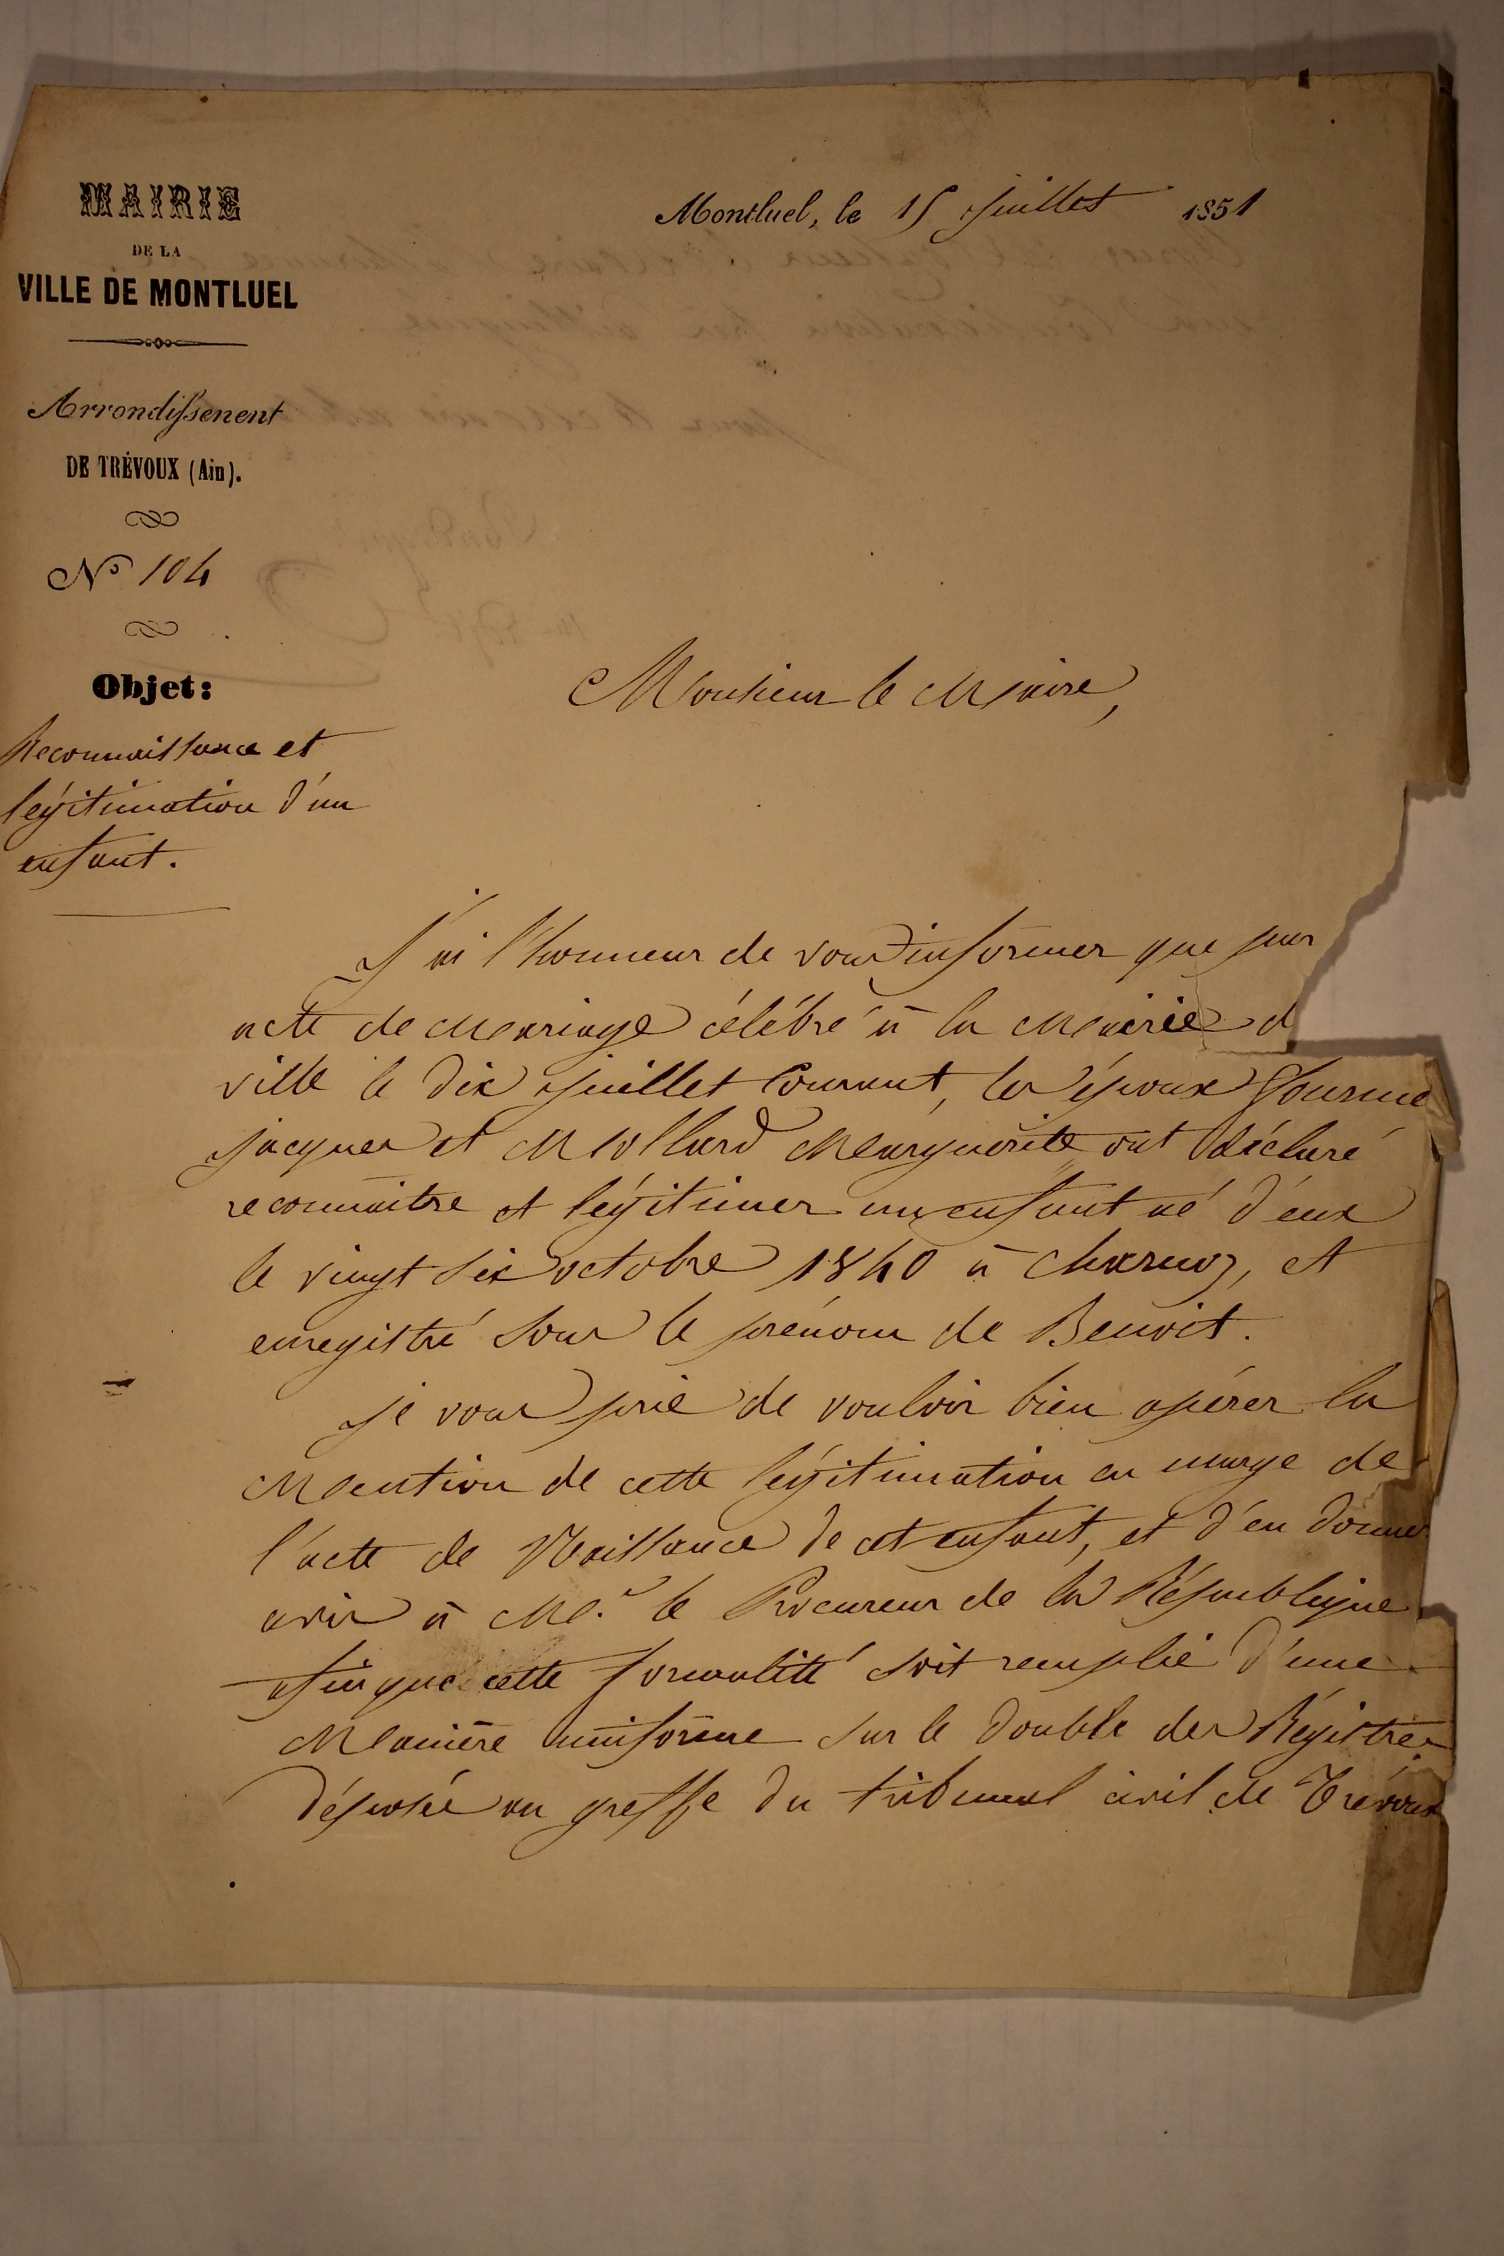 MAIRIE
DE LA
VILLE DE MONTLUEL
Arrondissement
DE TRÉVOUX (Ain).
No 104
Objet:
Reconnaissance et
légitimation d'un
enfant.
Montluel, le 15 Juillet 1851
Monsieur le Maire,
J'ai l'honneur de vous informer que par
acte de Mariage célébré à la Mairie d
ville le dix Juillet Courant, les époux
Jacques et Mollard Marguerite ont déclaré
reconnaitre et légitimer un enfant né d'eux
le vingt six octobre 1840 à Charnoz, et
enregistré sous le prénom de Benoit.
Je vous prie de vouloir bien opérer la
Mention de cette légitimation en marge de
l'acte de Naissance de cet enfant, et d'en donner
avis à Mr. le Procureur de la République
afin que cette formalité soit remplie d'une
Manière uniforme sur le double des Régistres
déposé au greffe du tribunal civil de Trévoux